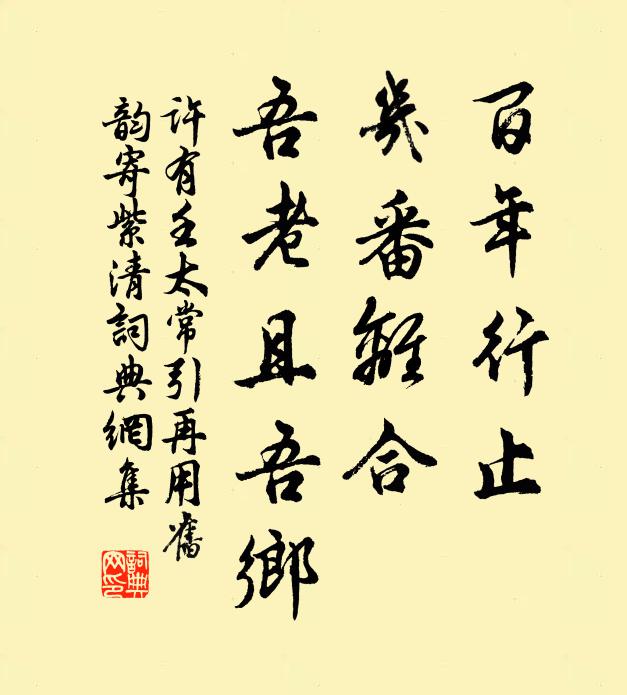 百年行止
幾番離合
吾老且吾鄉
許有壬太常引再用舊
韵寄紫清詞典網集
詞典
网印